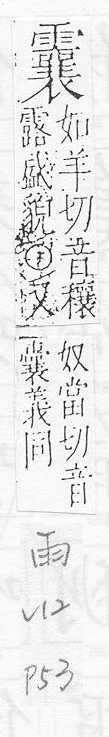 如羊切音穰
露盛貌又
奴當切音
囊義同
雨
V12
P53